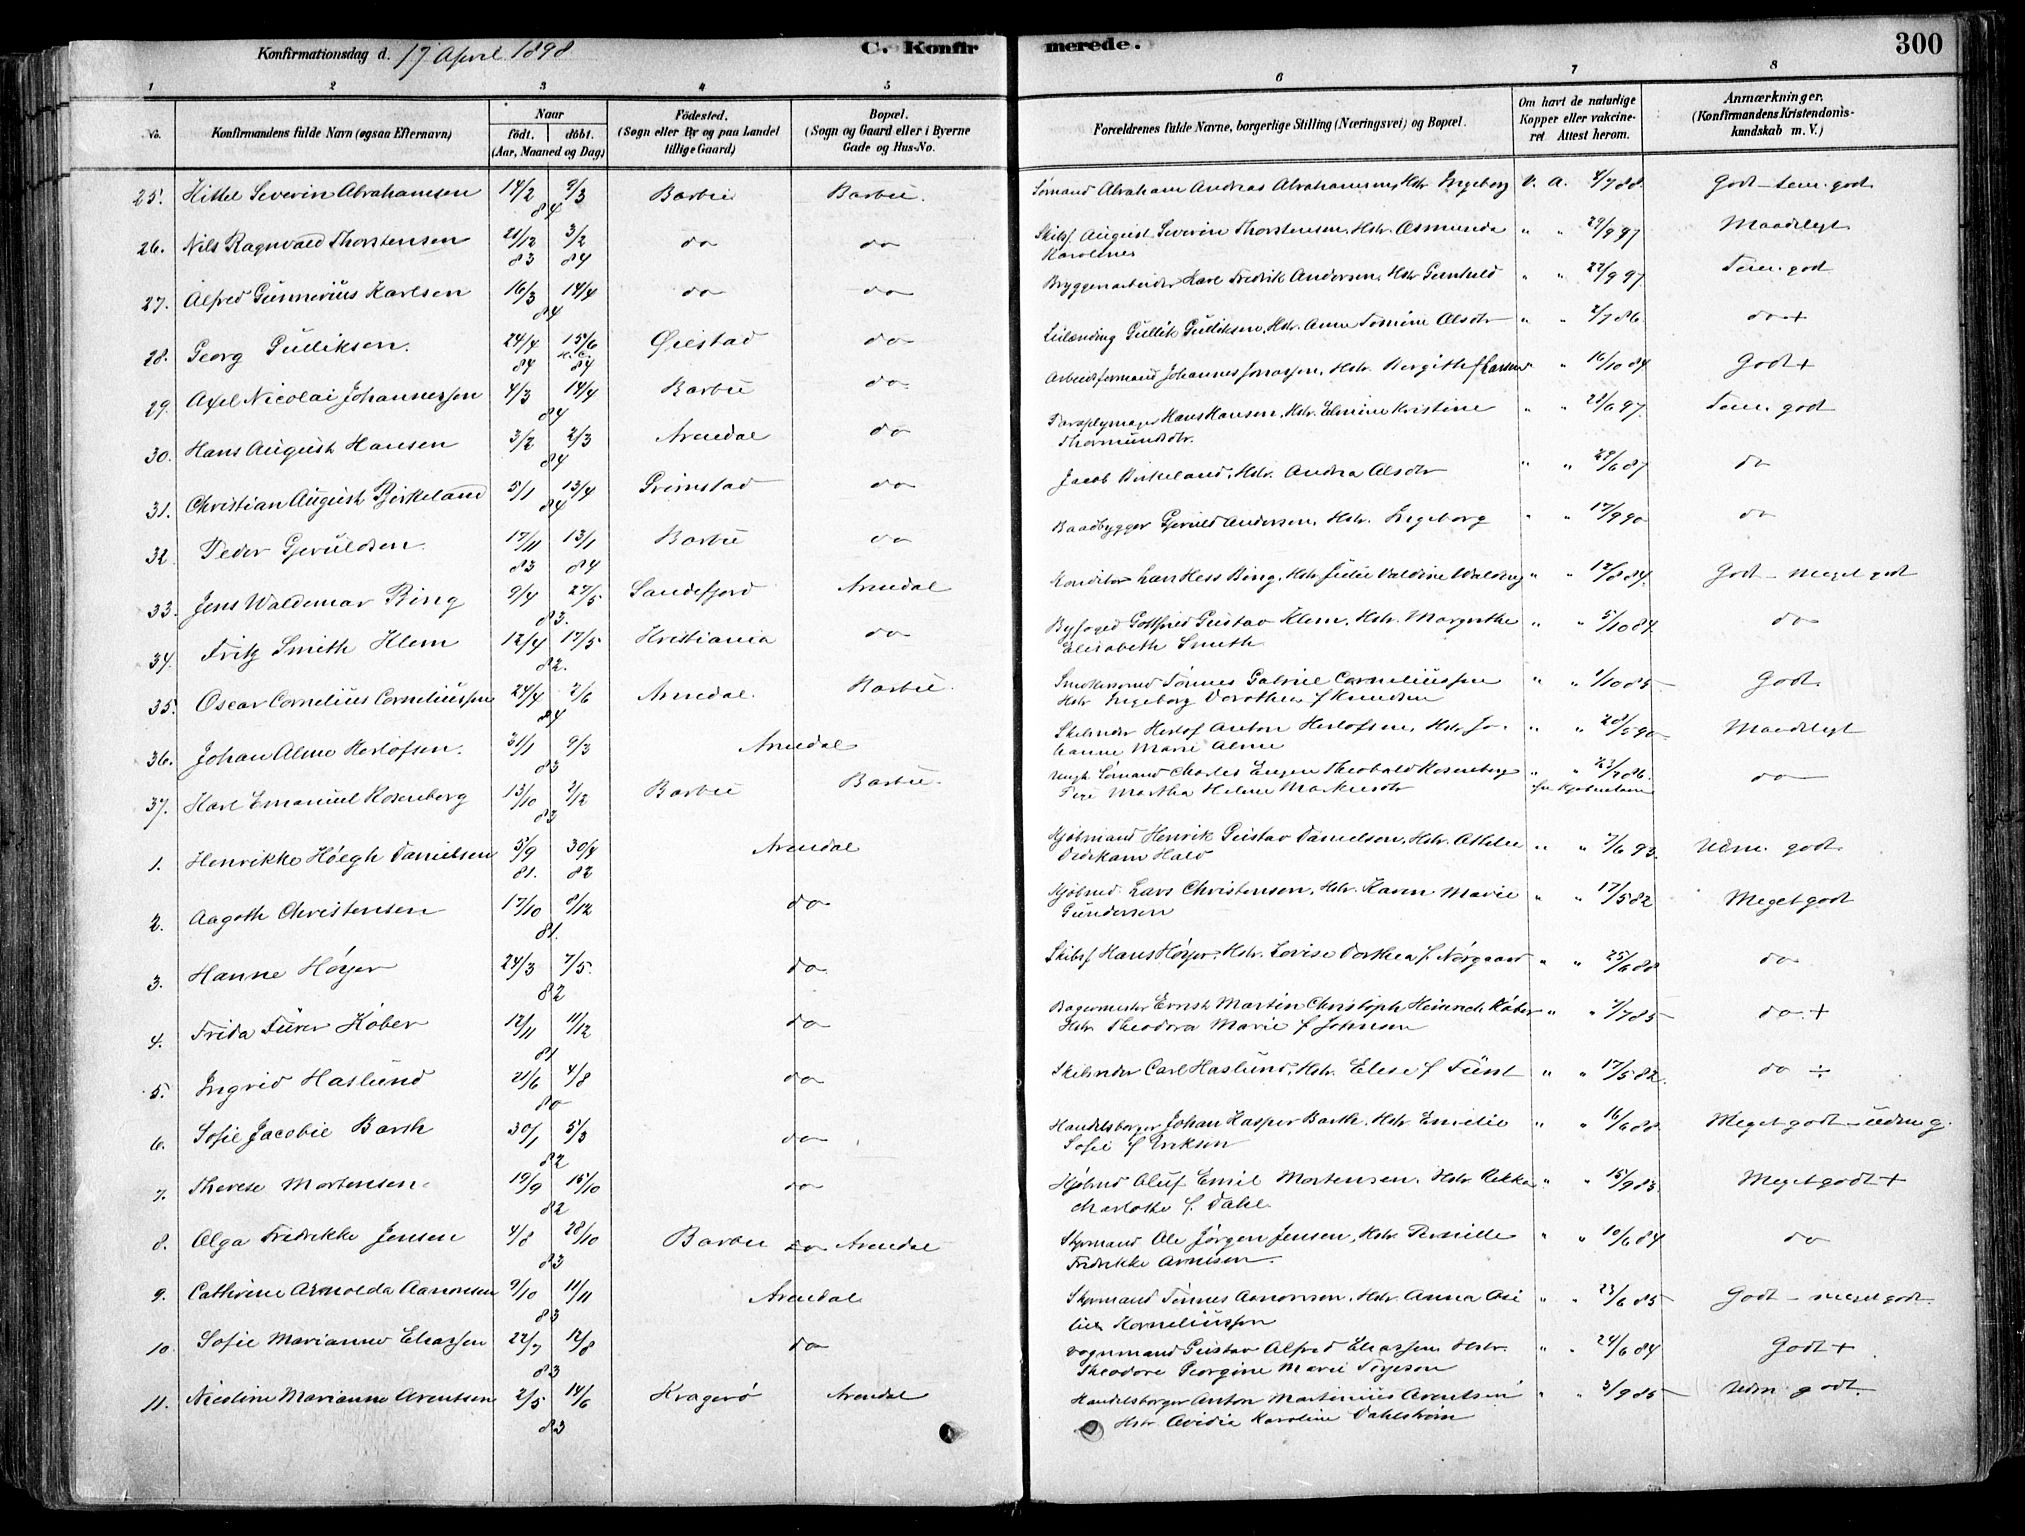 Konfirmationsdag d. 17 April 1898
C. Konfirmerede.
300
1 2 3 4 5 6 7 8
No.
Konfirmandens fulde Navn (ogsaa Efternavn)
Naar
födt. döbt.
(Aar, Maaned og Dag)
Födested.
(Sogn eller By og paa Landet
tillige Gaard)
Bopæl.
(Sogn og Gaard eller i Byerne
Gade og Hus-No.
Forældrenes fulde Navne, borgerlige Stilling (Næringsvei) og Bopæl.
Om havt de naturlige
Kopper eller vakcine-
ret Attest herom.
Anmærkninger.
(Konfirmandens Kristendoms-
kundskab m. V.)
25. Kittel Severin Abrahamsen 14/2 9/3 84 Barbu Barbu. Sømand Abraham Andreas Abrahamsen, Hstr. Ingeborg V. A. 4/7 88. Godt - tem. godt
26. Nils Ragnvald Thorstensen 21/12 83 3/2 84 do do Skibsf August Severin Thorstensen, Hstr. Osmunda " " 29/9 97 Maadeligt
Karolines
27. Alfred Gunnerius Karlsen 16/3 14/4 84 do do Bryggearbeider Karl Fredrik Andersen, Hstr Gunhild " " 22/9 97. Tem. godt
28. Georg Gulliksen. 24/4 84 15/6 84 Øiestad do Leilænding Gullik Gulliksen, Hstr. Anne Tomine Olsdtr " " 2/7 86. do +
29. Axel Nicolai Johannessen 4/3 14/4 84 Barbu do Arbeidsformand Johannes Jonassen, Hstr. Bergitte f Larsen " " 16/10 84 Godt +
30. Hans August Hansen 3/2 2/3 84 Arendal do Hans Hansen, Hstr. Elmine Kristine " " 28/6 97. Tem. godt
Thormundsdtr.
31. Christian August Birkeland 5/1 13/4 84 Grimstad do Jacob Birkeland, Hstr. Andrea Olsdtr " " 28/6 87 do
32 Peder Gjeruldsen 17/11 83 13/1 84 Barbu do Baadbygger Gjeruld Andersen, Hstr. Ingeborg " " 17/9 90 do
33. Jens Waldemar Ring 9/4 27/5 83. Sandefjord Arendal Konditor Lars Hess Ring, Hstr Julie Valdine Walberg " " 12/8 84. Godt - meget godt
34. Fritz Smith Klem 12/4 17/5 82. Kristiania do Byfoged Gottfried Gustav Klem, Hstr. Margrethe " " 5/10 84. do
Elisabeth Smith
35. Oscar Cornelius Corneliussen 24/4 2/6 84 Arendal. Barbu. Tønnes Gabriel Corneliussen " " 1/10 85 Godt
Hstr Ingeborg Dorothea f Knudsen
36. Johan Alme Herlofsen. 31/1 9/3 83 Arendal Herlof Anton Herlofsen, Hstr. Jo- " " 28/5 90 Maadeligt
hanne Marie Alme
37. Karl Emanuel Rosenberg 13/10 2/12 83 Barbu Barbu. Ungk. Sømand Charles Eugen Theobald Rosenberg " " 23/7 86. do
Pige Martha Helene Markusdtr
1. Henrikke Høegh Danielsen 5/9 81. 30/4 82 Arendal Kjøbmand Henrik Gustav Danielsen, Hstr. " " 7/6 93. Udm. godt
Hald
2. Aagoth Christensen 17/10 8/12 81. do Kjøbmd. Lars Christensen, Hstr. Karen Marie " " 17/5 82 Meget godt
Gundersen
3. Hanne Høyer 24/3 7/5. 82 do Skibsf Hans Høyer, Hstr. Lovise Dorthea f. Nørgaard " " 25/6 88 do
4. Frida Fürer Køber 12/11 11/12 81 do Bagermester Ernst Martin Christoph Heinrich Køber " " 2/7 85 do. +
Hstr Theodora Marie f Johnsen
5. Ingrid Haslund 21/6 4/8 80 do Carl Haslund, Hstr. Elise f Fürst " " 17/5 82. do ÷
6. Sofie Jacobie Barth 30/1 5/3 82 do Handelsborger Johan Kasper Barth, Hstr Emilie " " 16/6 88. Meget godt - udm g.
Sofie f Eriksen
7. Therese Mortensen. 19/9 15/10 82 do Kjøbmd Oluf Emil Mortensen, Hstr Rikka " " 15/9 83. Meget godt +
Charlotte f. Dahl.
8. Olga Fredrikke Jensen 4/8 28/10 83 Barbu Arendal Styrmand Ole Jørgen Jensen, Hstr Pernille " " 10/6 84 do
Fredrikke Arnesen.
9. Cathrine Arnolda Aanonsen 9/10 11/11 83 Arendal Styrmand Tønnes Aanonsen, Hstr. Anna " " 23/6 85 Godt - meget godt.
Korneliussen
10. Sofie Marianne Eliassen 22/7 12/8 83 do Vognmand Gustav Alfred Eliassen, Hstr. " " 24/6 84 Godt +
Theodore Georgine Marie Torjeson
11. Nicoline Marianne Arentsen 2/5 14/6 83 Kragerø Arendal Handelsborger Anton Martinius Arentsen " " 3/9 85 Udm godt
Hstr. Ovidia Karoline Dahlstrøm